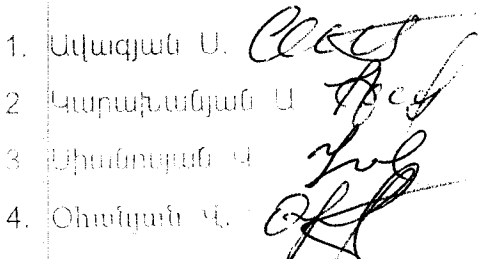 1. Ավագյան Ս.
2 Կարախանյան Ս
3 Սիանոսյան Վ
4. Օհանյան Վ.